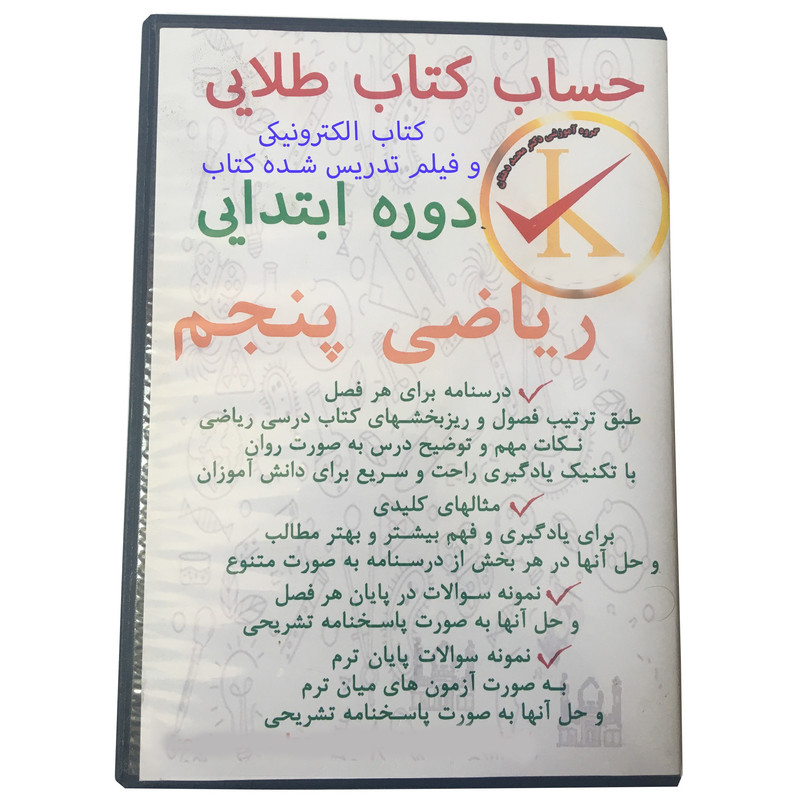 حساب کتاب طلایی
کتاب الکترونیکی
و فیلم تدریس شده کتاب
دوره ابتدایی
گروه آموزشی دکتر محمد دهقان
K
ریاضی پنجم
درسنامه برای هر فصل
طبق ترتیب فصول و ریزبخشهای کتاب درسی ریاضی
نکات مهم و توضیح درس به صورت روان
با تکنیک یادگیری راحت و سریع برای دانش آموزان
مثالهای کلیدی
برای یادگیری و فهم بیشتر و بهتر مطالب
و حل آنها در هر بخش از درسنامه به صورت متنوع
نمونه سوالات در پایان هر فصل
و حل آنها به صورت پاسخنامه تشریحی
نمونه سوالات پایان ترم
به صورت آزمون های میان ترم
و حل آنها به صورت پاسخنامه تشریحی